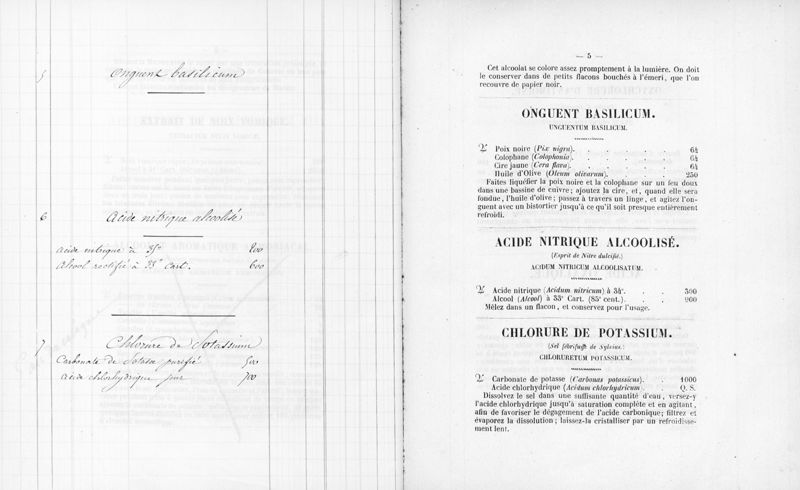 5 Onguent basilicum
6 Acide nitrique alcoolisé
acide nitrique à 35° 200
alcool rectifié à 33° Cart. 600
7 Chlorure de Potassium
Carbonate de Potasse purifié 500
acide chlorhydrique pur 700
— 5 —
Cet alcoolat se colore assez promptement à la lumière. On doit
le conserver dans de petits flacons bouchés à l'émeri, que l'on
recouvre de papier noir.
ONGUENT BASILICUM.
UNGUENTUM BASILICUM.
Poix noire (Pix nigra). . . . . 64
Colophane (Colophonia). . . . . 64
Cire jaune (Cera flava). . . . . 64
Huile d'Olive (Oleum olivarum). . . . 250
Faites liquéfier la poix noire et la colophane sur un feu doux
dans une bassine de cuivre; ajoutez la cire, et, quand elle sera
fondue, l'huile d'olive; passez à travers un linge, et agitez l'on-
guent avec un bistortier jusqu'à ce qu'il soit presque entièrement
refroidi.
ACIDE NITRIQUE ALCOOLISÉ.
(Esprit de Nitre dulcifié.)
ACIDUM NITRICUM ALCOOLISATUM.
Acide nitrique (Acidum nitricum) à 34°. . . 300
Alcool (Alcool) à 33° Cart. (85° cent.). . . 900
Mêlez dans un flacon, et conservez pour l'usage.
CHLORURE DE POTASSIUM.
(Sel fébrifuge de Sylvius.)
CHLORURETUM POTASSICUM.
Carbonate de potasse (Carbonas potassicus). . 1000
Acide chlorhydrique (Acidum chlorhydricum . Q. S.
Dissolvez le sel dans une suffisante quantité d'eau, versez-y
l'acide chlorhydrique jusqu'à saturation complète et en agitant,
afin de favoriser le dégagement de l'acide carbonique; filtrez et
évaporez la dissolution; laissez-la cristalliser par un refroidisse-
ment lent.